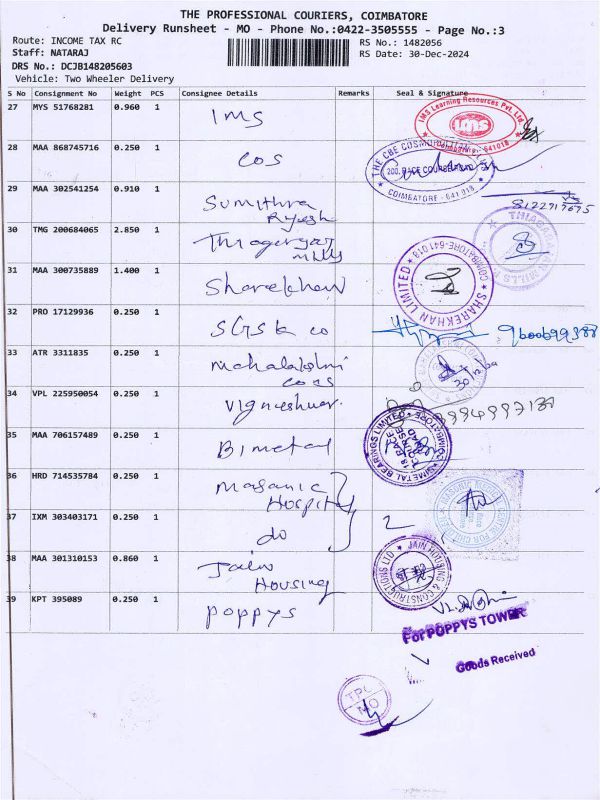 THE PROFESSIONAL COURIERS, COIMBATORE
Delivery Runsheet - MO - Phone No.:0422-3505555 - Page No.:3
Route: INCOME TAX RC
RS No.: 1482056
Staff: NATARAJ
RS Date: 30-Dec-2024
DRS No.: DCJB148205603
Vehicle: Two Wheeler Delivery
S No Consignment No Weight PCS Consignee Details Remarks Seal & Signature
27 MYS 51768281 0.960 1 IMS
I.M.S Learning Resources Pvt. Ltd
ims
641018
28 MAA 868745716 0.250 1 COS
THE CBE COSMOPOLITAN
200, RACE COURSE
COIMBATORE - 641 018
29 MAA 302541254 0.910 1 Sumithra
8122717675
30 TMG 200684065 2.850 1 Thiagarajar
Mills
31 MAA 300735889 1.400 1 Sharekhan
SHAREKHAN LIMITED
COIMBATORE-641 018
32 PRO 17129936 0.250 1 SGSK CO
33 ATR 3311835 0.250 1 Mahalakshmi
30/12/24
34 VPL 225950054 0.250 1 Vigneshwar
35 MAA 706157489 0.250 1 Bimetal
BIMETAL BEARINGS LIMITED
18, RACE
COURSE
ROAD
COIMBATORE
36 HRD 714535784 0.250 1 Masonic
Hospital
37 IXM 303403171 0.250 1 do
2
38 MAA 301310153 0.860 1 Jain
Housing
JAIN HOUSING & CONSTRUCTIONS LTD
39 KPT 395089 0.250 1 Poppys
For POPPYS TOWER
Goods Received
TPC
MO